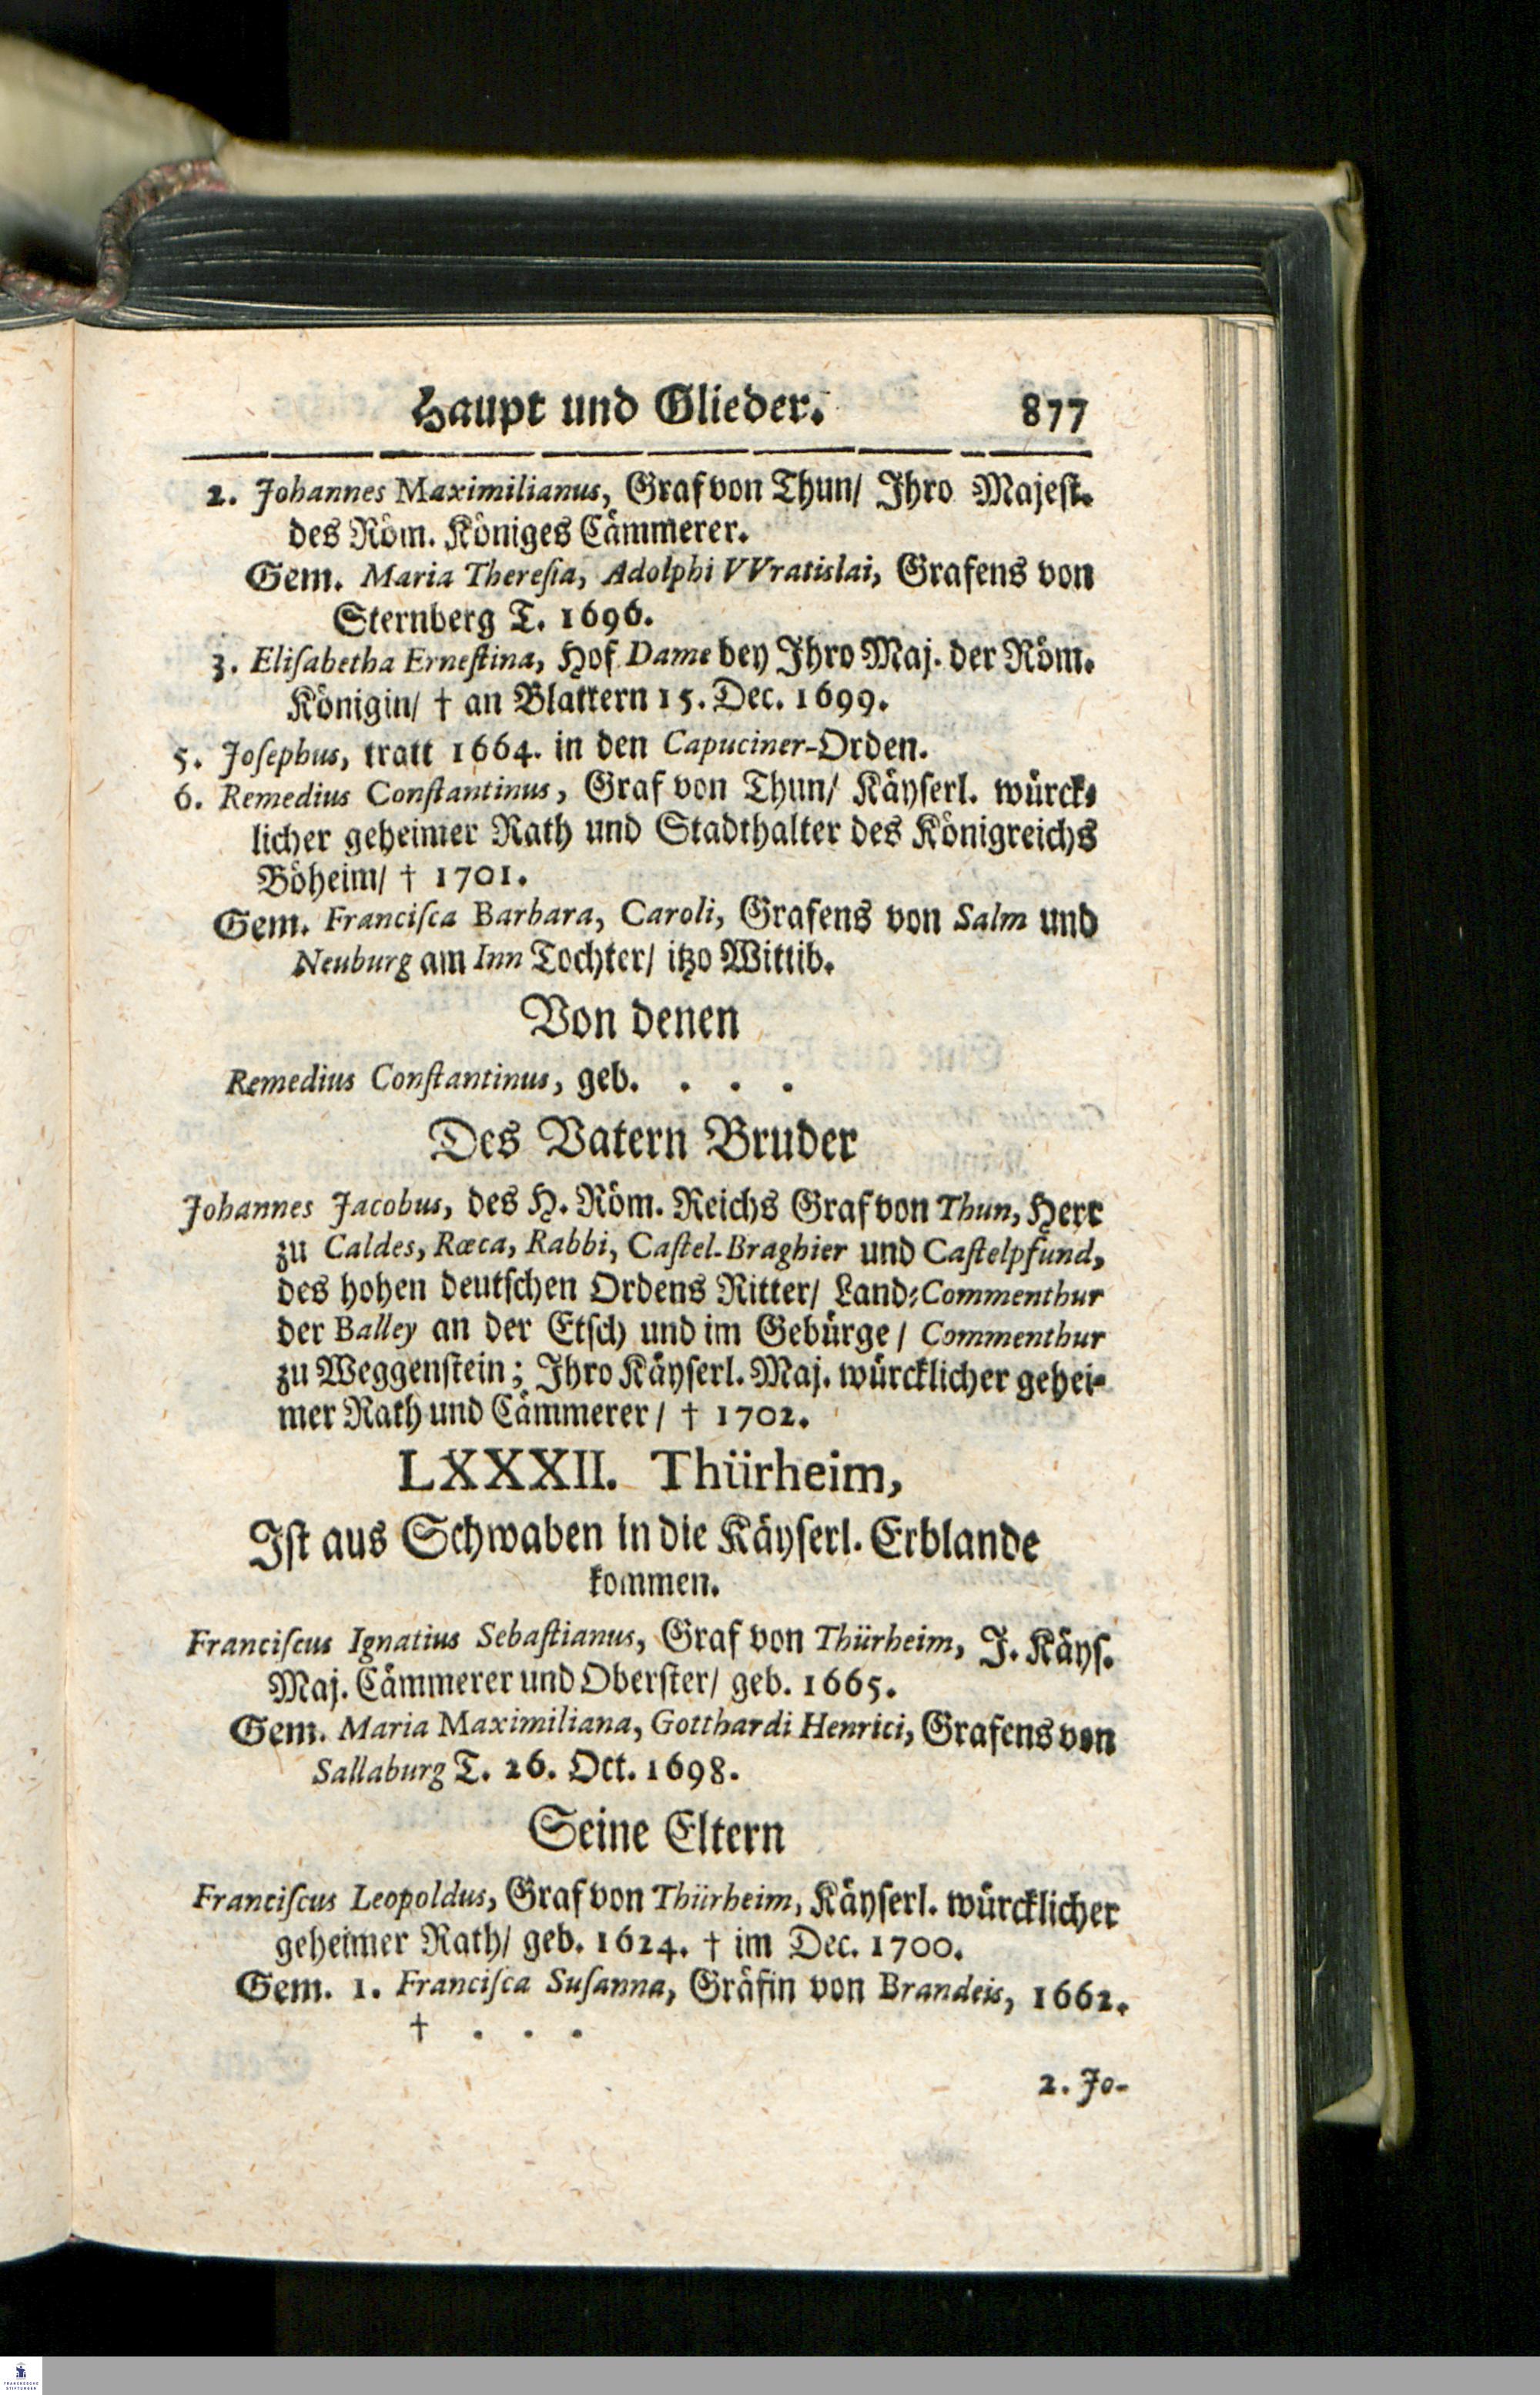 Haupt und Glieder. 877
2. Johannes Maximilianus, Graf von Thun/ Ihro Majest.
des Röm. Königes Cämmerer.
Gem. Maria Theresia, Adolphi VVratislai, Grafens von
Sternberg T. 1696.
3. Elisabetha Ernestina, Hof Dame bey Ihro Maj. der Röm.
Königin/ † an Blattern 15. Dec. 1699.
5. Josephus, tratt 1664. in den Capuciner-Orden.
6. Remedius Constantinus, Graf von Thun/ Käyserl. würck-
licher geheimer Rath und Stadthalter des Königreichs
Böheim/ † 1701.
Gem. Francisca Barbara, Caroli, Grafens von Salm und
Neuburg am Inn Tochter/ itzo Wittib.
Von denen
Remedius Constantinus, geb. . . .
Des Vatern Bruder
Johannes Jacobus, des H. Röm. Reichs Graf von Thun, Herr
zu Caldes, Ræca, Rabbi, Castel-Braghier und Castelpfund,
des hohen deutschen Ordens Ritter/ Land-Commenthur
der Balley an der Etsch und im Gebürge / Commenthur
zu Weggenstein; Ihro Käyserl. Maj. würcklicher gehei-
mer Rath und Cämmerer / † 1702.
LXXXII. Thürheim,
Ist aus Schwaben in die Käyserl. Erblande
kommen.
Franciscus Ignatius Sebastianus, Graf von Thürheim, J. Käys.
Maj. Cämmerer und Oberster/ geb. 1665.
Gem. Maria Maximiliana, Gotthardi Henrici, Grafens von
Sallaburg T. 26. Oct. 1698.
Seine Eltern
Franciscus Leopoldus, Graf von Thürheim, Käyserl. würcklicher
geheimer Rath/ geb. 1624. † im Dec. 1700.
Gem. 1. Francisca Susanna, Gräfin von Brandeis, 1662.
† . . .
2. Jo-
FRANCKESCHE
STIFTUNGEN